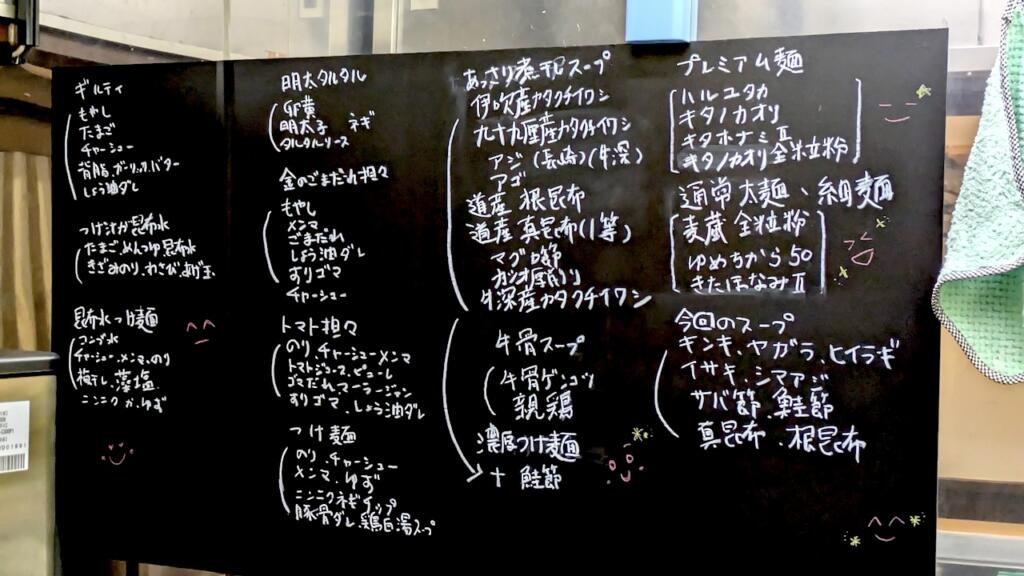 ギルティ
もやし
たまご
チャーシュー
背脂、ガーリックバター
しょう油ダレ
つけ汁が昆布水
たまご、めんつゆ、昆布水
きざみのり、わさび、あげ玉、
昆布水つけ麺
コンブ水
チャーシュー、メンマ、のり
梅干し、藻塩、
ニンニクか、ゆず
明太タルタル
卵黄
明太子 ネギ
タルタルソース
金のごまだれ担々
もやし
メンマ
ごまだれ
しょう油ダレ
すりゴマ
チャーシュー
トマト担々
のり、チャーシューメンマ
トマトジュース、ピューレ
ゴマだれマーラージャン
すりゴマ、しょう油ダレ
つけ麺
のり、チャーシュー
メンマ、ゆず
ニンニクネギチップ
豚骨ダレ、鶏白湯スープ
あっさり煮干スープ
伊吹産カタクチイワシ
九十九里産カタクチイワシ
アジ(長崎)(牛深)
アゴ
道産 根昆布
道産 真昆布(1等)
マグロ節
カツオ厚削り
牛深産カタクチイワシ
牛骨スープ
牛骨ゲンコツ
親鶏
濃厚つけ麺
+ 鮭節
プレミアム麺
ハルユタカ
キタノカオリ
キタホナミⅡ
キタノカオリ全粒粉
通常太麺、細麺
麦蔵 全粒粉
ゆめちから50
きたほなみⅡ
今回のスープ
キンキ、ヤガラ、ヒイラギ
イサキ、シマアジ
サバ節、鮭節
真昆布、根昆布